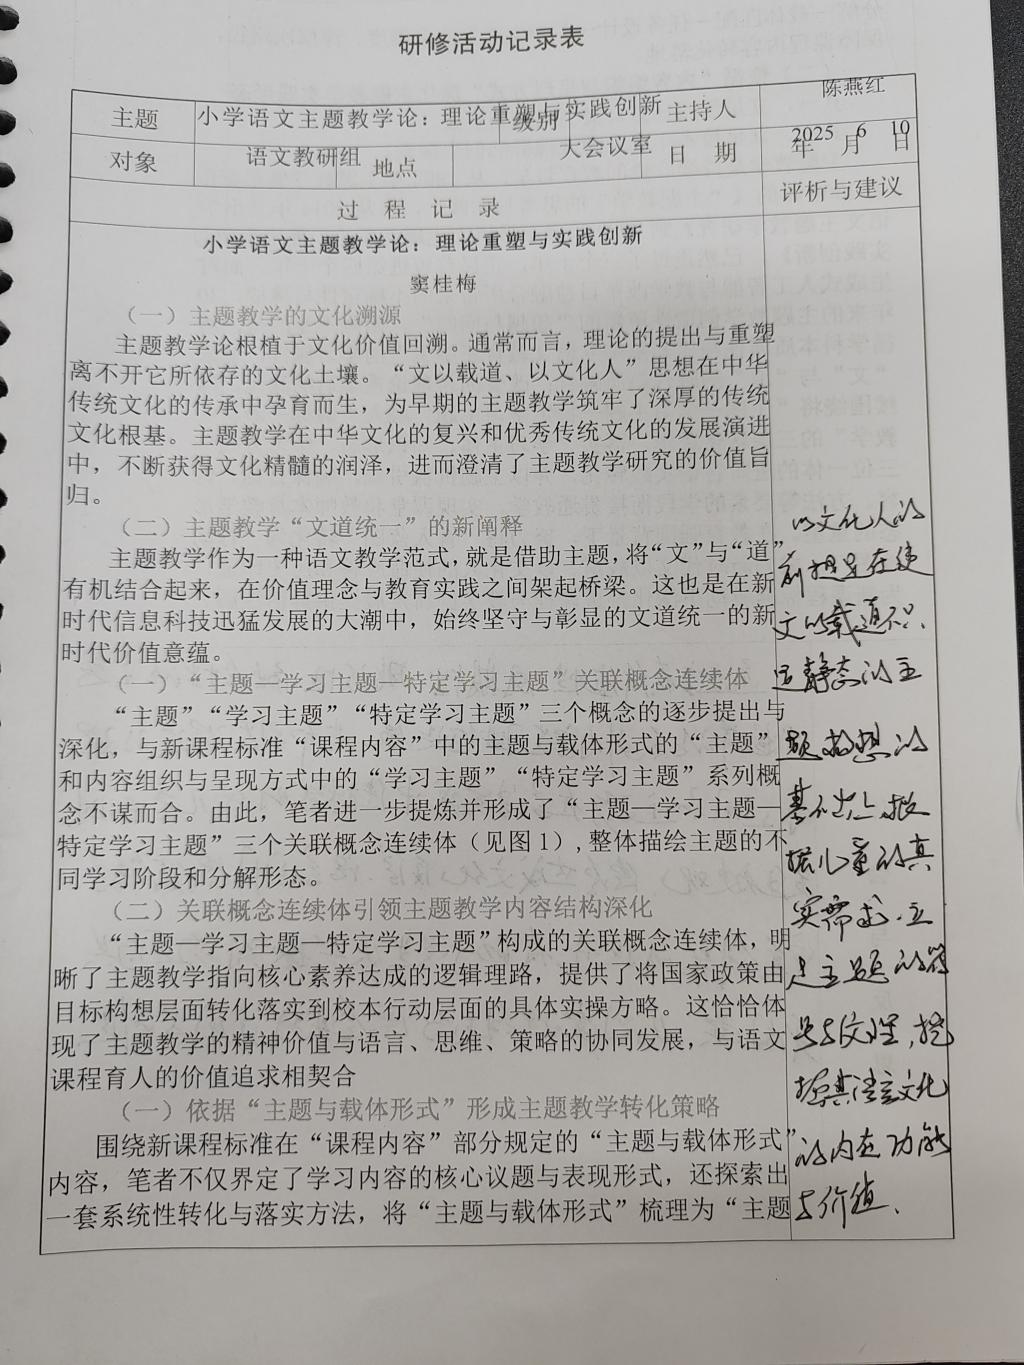 研修活动记录表
主题 小学语文主题教学论：理论重塑与实践创新 级别 主持人 陈燕红
对象 语文教研组 地点 大会议室 日 期 2025年6月10日
过 程 记 录 评析与建议
小学语文主题教学论：理论重塑与实践创新
窦桂梅
（一）主题教学的文化溯源
主题教学论根植于文化价值回溯。通常而言，理论的提出与重塑
离不开它所依存的文化土壤。“文以载道、以文化人”思想在中华
传统文化的传承中孕育而生，为早期的主题教学筑牢了深厚的传统
文化根基。主题教学在中华文化的复兴和优秀传统文化的发展演进
中，不断获得文化精髓的润泽，进而澄清了主题教学研究的价值旨
归。
（二）主题教学“文道统一”的新阐释
主题教学作为一种语文教学范式，就是借助主题，将“文”与“道”
有机结合起来，在价值理念与教育实践之间架起桥梁。这也是在新
时代信息科技迅猛发展的大潮中，始终坚守与彰显的文道统一的新
时代价值意蕴。
（一）“主题—学习主题—特定学习主题”关联概念连续体
“主题”“学习主题”“特定学习主题”三个概念的逐步提出与
深化，与新课程标准“课程内容”中的主题与载体形式的“主题”
和内容组织与呈现方式中的“学习主题”“特定学习主题”系列概
念不谋而合。由此，笔者进一步提炼并形成了“主题—学习主题—
特定学习主题”三个关联概念连续体（见图1）,整体描绘主题的不
同学习阶段和分解形态。
（二）关联概念连续体引领主题教学内容结构深化
“主题—学习主题—特定学习主题”构成的关联概念连续体，明
晰了主题教学指向核心素养达成的逻辑理路，提供了将国家政策由
目标构想层面转化落实到校本行动层面的具体实操方略。这恰恰体
现了主题教学的精神价值与语言、思维、策略的协同发展，与语文
课程育人的价值追求相契合
（一）依据“主题与载体形式”形成主题教学转化策略
围绕新课程标准在“课程内容”部分规定的“主题与载体形式”
内容，笔者不仅界定了学习内容的核心议题与表现形式，还探索出
一套系统性转化与落实方法，将“主题与载体形式”梳理为“主题
以文化人的
前提是在使
文以载道不只
静态的主
题 的
基 上，
儿童的真
实需求，立
足主题的
与文 ，挖
掘其 文化
的内在功能
与价值、